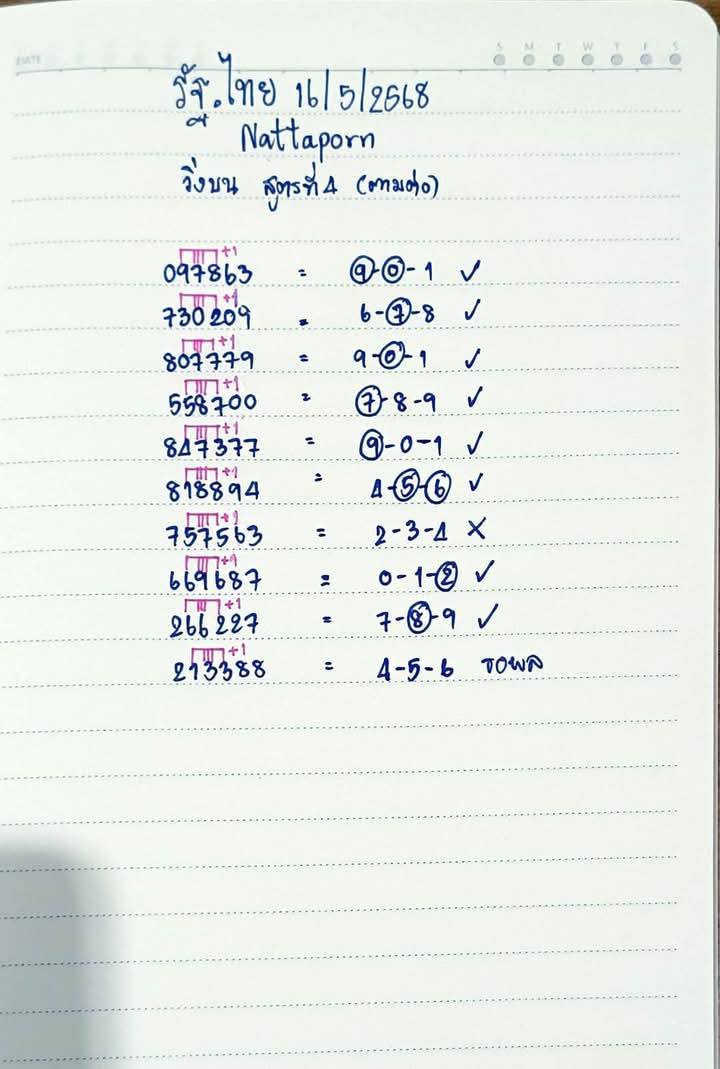 DATE S M T W T F S
รัฐ.ไทย 16/5/2568
Nattaporn
วิ่งบน สูตรที่ 4 (ตามต่อ)
+1
097863 = 9-0-1 ✓
+1
730209 = 6-7-8 ✓
+1
807779 = 9-0-1 ✓
+1
558700 = 7-8-9 ✓
+1
847377 = 9-0-1 ✓
+1
818894 = 4-5-6 ✓
+1
757563 = 2-3-4 X
+1
669687 = 0-1-2 ✓
+1
266227 = 7-8-9 ✓
+1
213388 = 4-5-6 รอผล